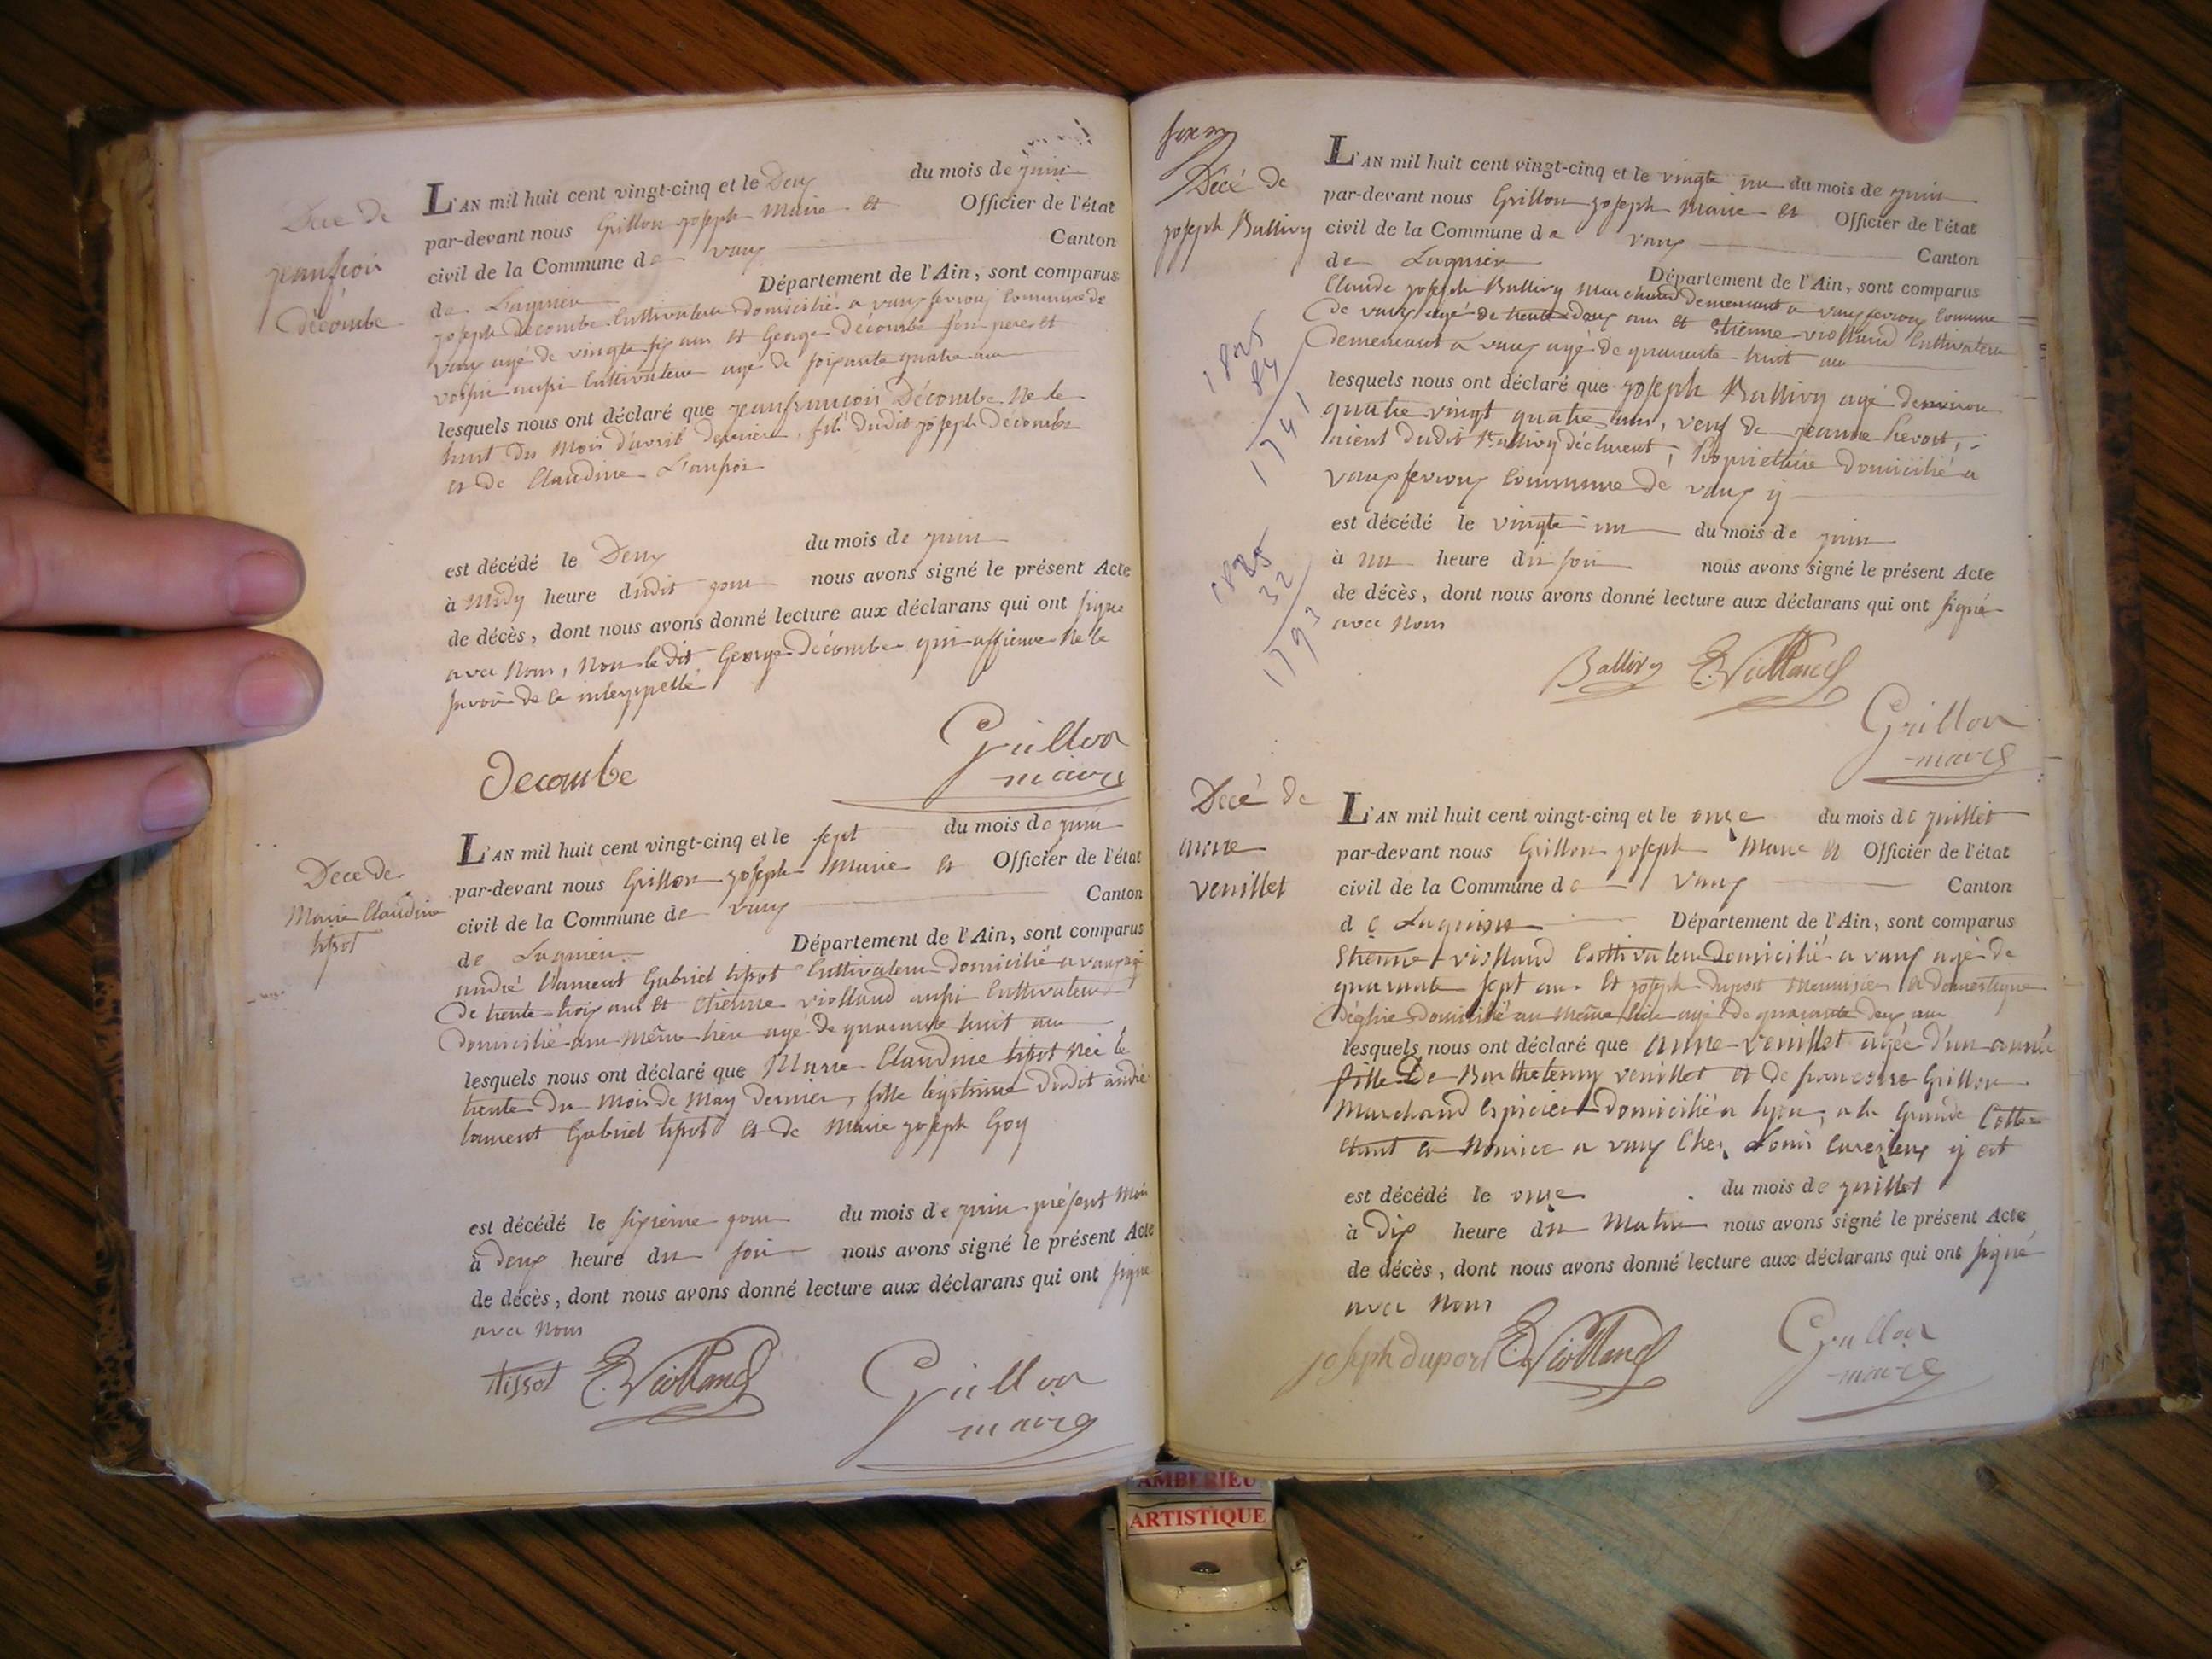 Décé de
jeanfçois
décombe
L'AN mil huit cent vingt-cinq et le Deux du mois de juin
par-devant nous Grillon joseph Maire et Officier de l'état
civil de la Commune de vaux Canton
de Lagnieu Département de l'Ain, sont comparus
joseph Décombe Cultivateur domicilié a vauxfevroux Commune de
vaux agé de vingt six ans et George décombe son pere et
voisin aussi Cultivateur agé de soixante quatre ans
lesquels nous ont déclaré que jeanfrancois Décombe Né le
huit du Mois d'avril dernier, fils dudit joseph Décombe
et de Claudine
est décédé le Deux du mois de juin
à Midy heure dudit jour nous avons signé le présent Acte
de décès, dont nous avons donné lecture aux déclarans qui ont signé
avec Nous, Non le dit George décombe qui affirme Ne le
savoir de ce interppellé
Decombe
Grillon
maire
Décé de
Marie Claudine
tissot
L'AN mil huit cent vingt-cinq et le sept du mois de juin
par-devant nous Grillon joseph Maire et Officier de l'état
civil de la Commune de vaux Canton
de Lagnieu Département de l'Ain, sont comparus
andré laurent Gabriel tissot Cultivateur domicilié a vaux agé
De trente trois ans et Etienne violland aussi Cultivateur
domicilié au même lieu agé de quarante huit ans
lesquels nous ont déclaré que Marie Claudine tissot Née le
trente du Mois de May dernier, fille légitime dudit andré
laurent Gabriel tissot et de Marie joseph Goy
est décédé le sixieme jour du mois de juin présent Mois
à deux heure du soir nous avons signé le présent Acte
de décès, dont nous avons donné lecture aux déclarans qui ont signé
avec Nous
tissot E. Violland
Grillon
maire
Décé de
joseph Ballivy
1825
84
1741
1825
32
1793
L'AN mil huit cent vingt-cinq et le vingte un du mois de juin
par-devant nous Grillon joseph Maire et Officier de l'état
civil de la Commune de vaux Canton
de Lagnieu Département de l'Ain, sont comparus
Claude joseph Ballivy marchand demeurant a vauxfevroux Commune
de vaux agé de trente deux ans et Etienne violland Cultivateur
Demeurant a vaux agé de quarante huit ans
lesquels nous ont déclaré que joseph Ballivy agé denviron
quatre vingt quatre ans, veuf de jeanne
dudit Ballivy déclarent, Propriétaire domicilié a
vauxfevroux Commune de vaux y
est décédé le vingte un du mois de juin
à un heure du soir nous avons signé le présent Acte
de décès, dont nous avons donné lecture aux déclarans qui ont signé
avec Nous
Ballivy E. Violland
Grillon
maire
Décé de
anne
venillet
L'AN mil huit cent vingt-cinq et le onze du mois de juillet
par-devant nous Grillon joseph Maire et Officier de l'état
civil de la Commune de vaux Canton
de Lagnieu Département de l'Ain, sont comparus
Etienne violland Cultivateur domicilié a vaux agé de
quarante sept ans et joseph duport a domestique
déglise domicilié au même lieu agé de quarante deux ans
lesquels nous ont déclaré que anne venillet agée d'un année
fille De Barthelemy venillet et de francoise Grillon
Marchand Epicier domicilié a lyon, a la Grande Cotte
Etant en Nourice a vaux Chez Louis y est
est décédé le onze du mois de juillet
à dix heure du Matin nous avons signé le présent Acte
de décès, dont nous avons donné lecture aux déclarans qui ont signé
avec Nous
joseph duport E. Violland
Grillon
maire
AMBERIEU
ARTISTIQUE